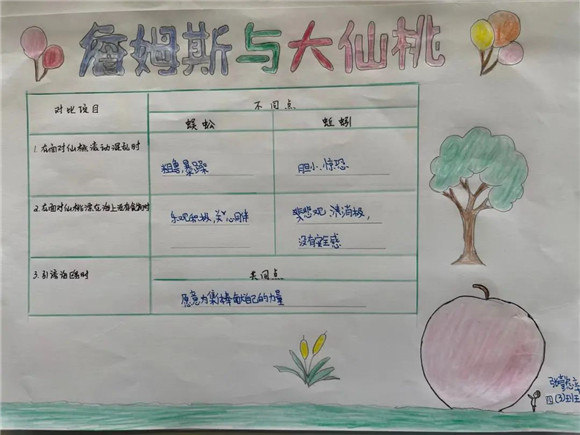 詹姆斯与大仙桃
对比项目
不同点
蜈蚣
蚯蚓
1.在面对仙桃滚动混乱时
粗鲁,暴躁
胆小,惊恐
2.在面对仙桃漂在海上没有食物时
乐观积极,关心同伴
悲观,消极,
没有安全感
3.引诱海鸥时
共同点
愿意为集体奉献自己的力量
四(3)班